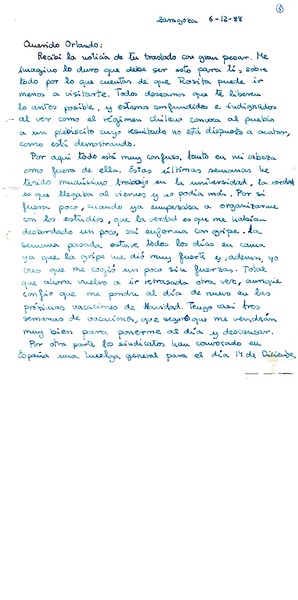 ①
Zaragoza 6-12-88
Querido Orlando:
Recibí la noticia de tu traslado con gran pesar. Me
imagino lo duro que debe ser esto para tí, sobre
todo por lo que cuentas de que Rosita puede ir
menos a visitarte. Todos deseamos que te liberen
lo antes posible, y estamos confundidos e indignados
al ver como el régimen chileno convoca al pueblo
a un plebiscito cuyo resultado no está dispuesto a acatar,
como está demostrando.
Por aquí todo está muy confuso, tanto en mi cabeza
como fuera de ella. Estas últimas semanas he
tenido muchísimo trabajo en la universidad, la verdad
es que llegaba al viernes y no podía más. Por si
fuera poco, cuando ya empezaba a organizarme
con los estudios, que la verdad es que me habían
desbordado un poco, caí enferma con gripe. La
semana pasada estuve todos los días en cama
ya que la gripe me dió muy fuerte y, además, yo
creo que me cogió un poco sin fuerzas. Total
que ahora vuelvo a ir retrasada otra vez, aunque
confío que me pondré al día de nuevo en las
próximas vacaciones de Navidad. Tengo casi tres
semanas de vacaciones, que seguro que me vendrán
muy bien para ponerme al día y descansar.
Por otra parte los sindicatos han convocado en
España una huelga general para el día 14 de Diciembre